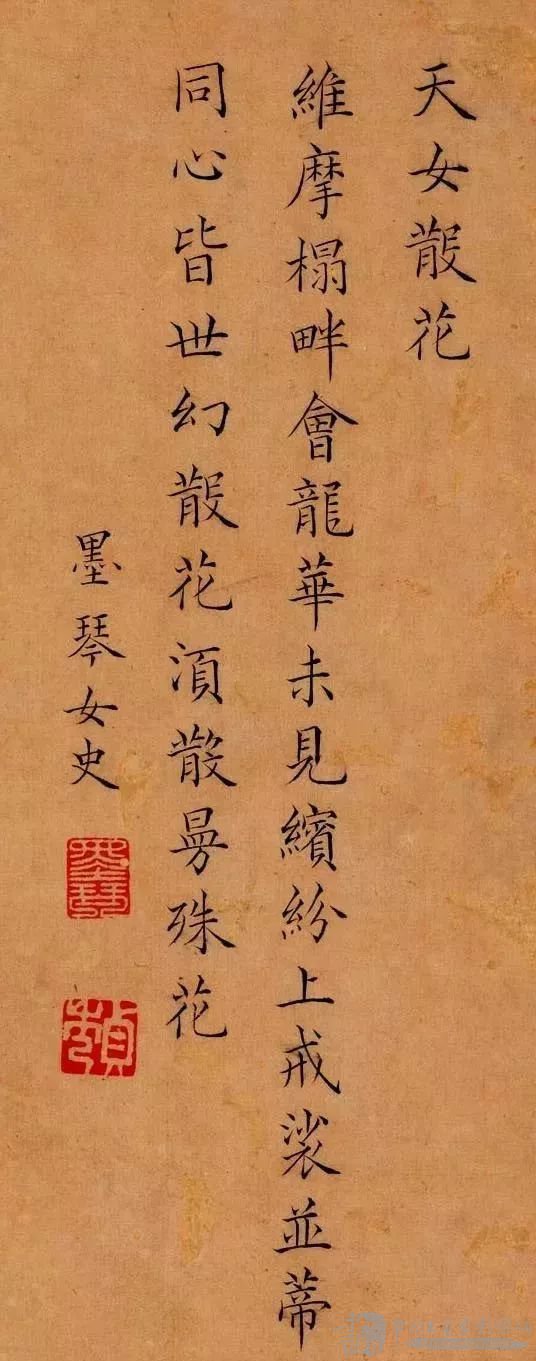 天女散花
維摩榻畔會龍華未見繽紛上戒裟並蒂
同心皆世幻散花須散曼殊花
墨琴女史
墨琴